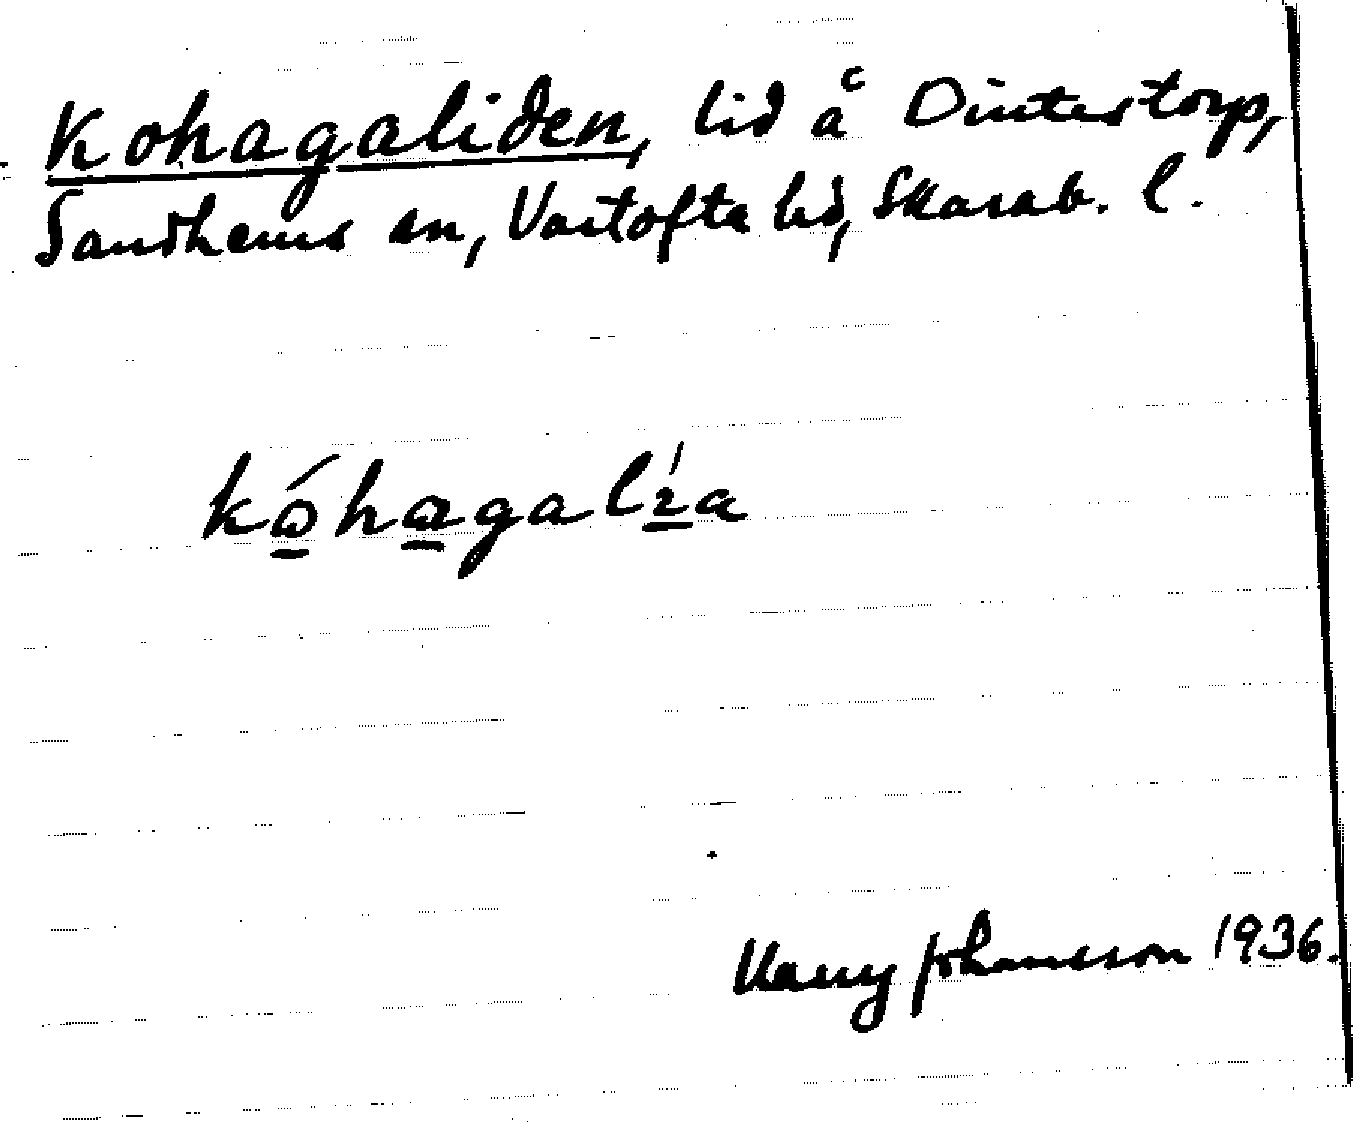 Kohagaliden, lid å Dintestorp,
Sandhems sn, Vartofta hd, Skarab. l.
Harry Johansson 1936.